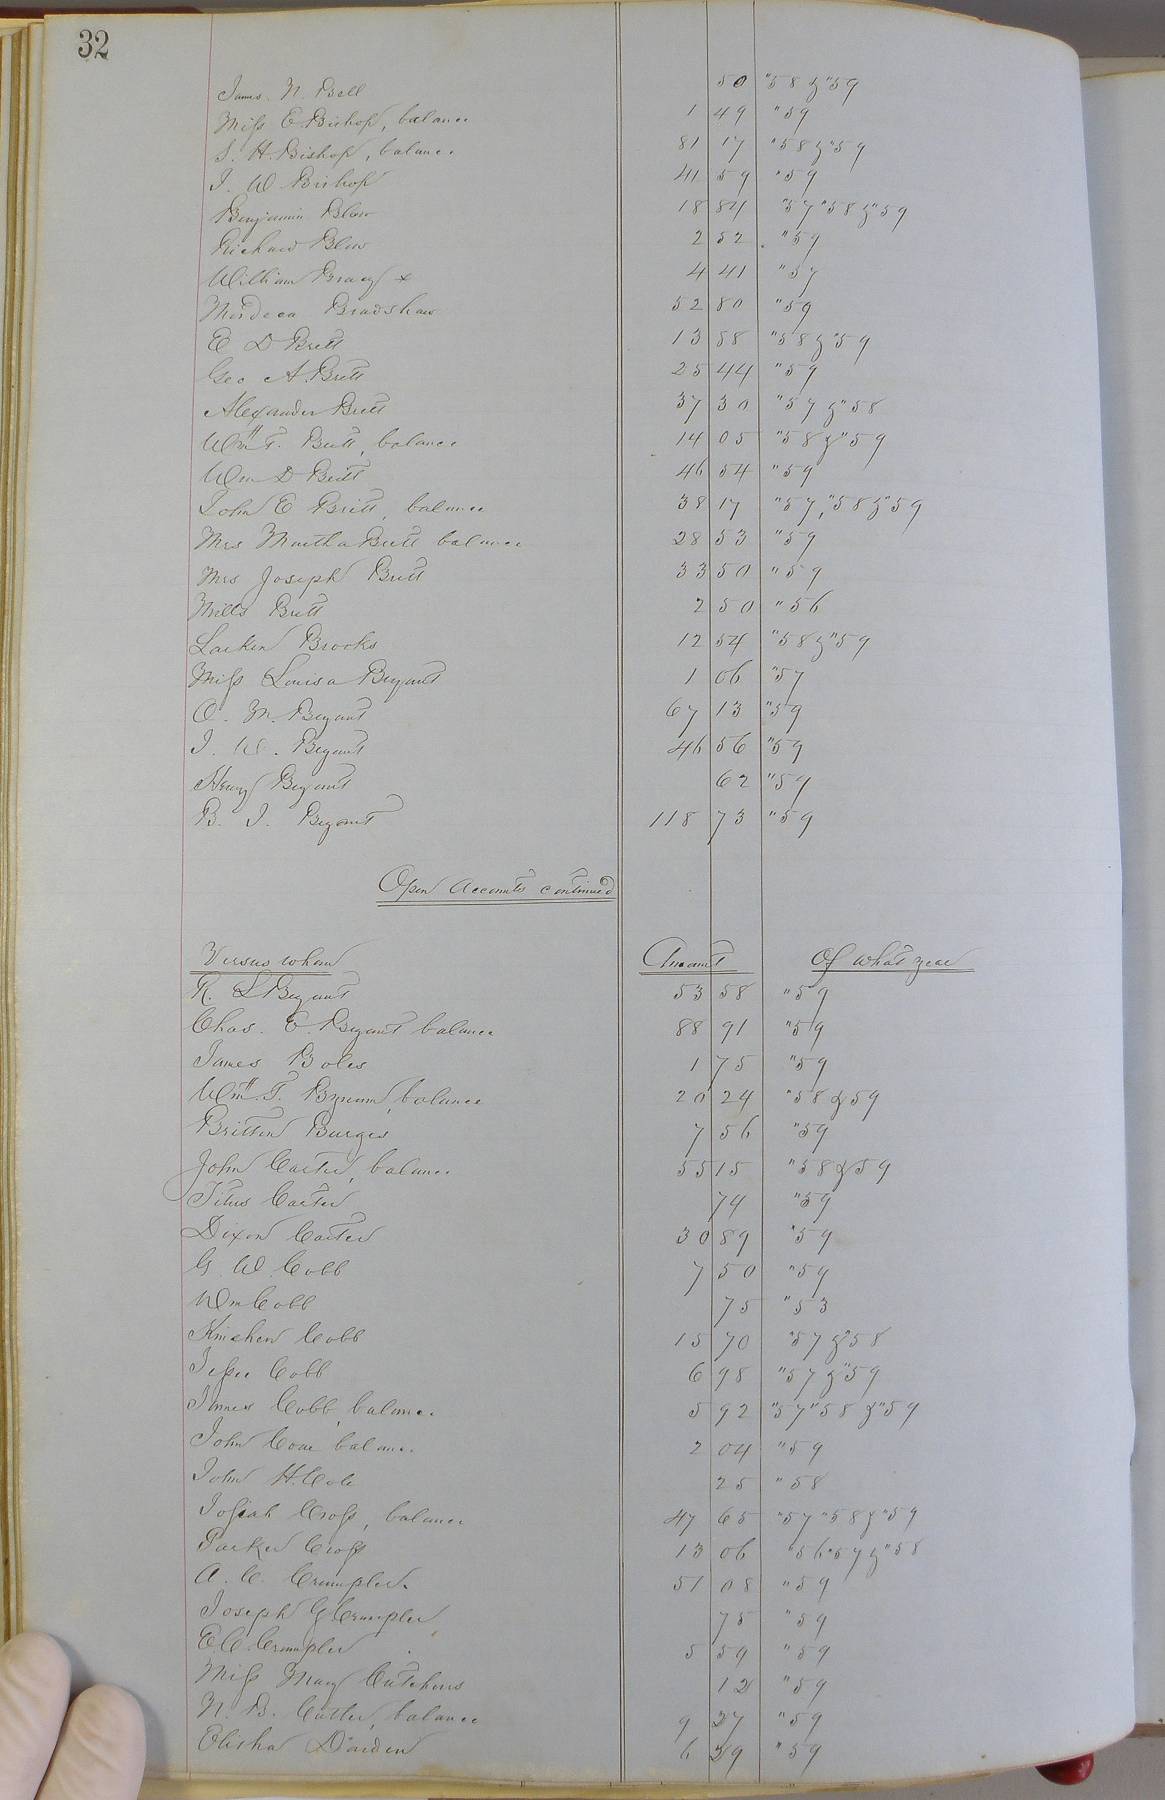 32
James. N. Bell 50 "58 & "59
Miss E. Bishop, balance 1 49 "59
S. H. Bishop, balance. 81 17 "58 & "59
J. W. Bishop 41 59 "59
Benjamin Blow 18 84 "57 "58 & "59
Richard Blow 2 52 "59
William Bracy + 4 41 "57
Mordeca Bradshaw 52 80 "59
E D Britt 13 58 "58 & "59
Geo A. Britt 25 44 "59
Alexander Britt 37 30 "57 & "58
Wm T. Britt, balance 14 05 "58 & "59
Wm D Britt 46 54 "59
John E Britt, balance 38 17 "57, "58 & "59
Mrs Martha Britt balance 28 53 "59
Mrs Joseph Britt 33 50 "59
Mills Britt 2 50 "56
Larken Brooks 12 54 "58 & "59
Miss Louisa Bryant 1 06 "57
O. M. Bryant 67 13 "59
J. W. Bryant 46 56 "59
Henry Bryant 62 "59
B. J. Bryant 118 73 "59
Open accounts continued
Versus whom Amount Of what year
R. S Bryant 53 58 "59
Chas. E. Bryant balance 88 91 "59
James Boles 1 75 "59
Wm T. Bynum, balance 20 24 "58 & 59
Britten Burges 7 56 "59
John Carter, balance. 55 15 "58 & 59
Titus Carter 74 "59
Dixon Carter 30 89 "59
G. W. Cobb 7 50 "59
Wm Cobb 75 "53
Kinchen Cobb 15 70 "57 & "58
Jesse Cobb 6 98 "57 & "59
James Cobb, balance. 5 92 "57 "58 & "59
John balance. 2 04 "59
John H. Cole 25 "58
Josiah Cross, balance 47 65 "57 "58 & "59
Parker Cross 13 06 "56 "57 & "58
A. C. Crumpler. 51 08 "59
Joseph G Crumpler 75 "59
E C. Crumpler 5 59 "59
Miss Mary Cutchins 12 "59
N. B. Cutler, balance 9 27 "59
Elisha Darden 6 39 "59